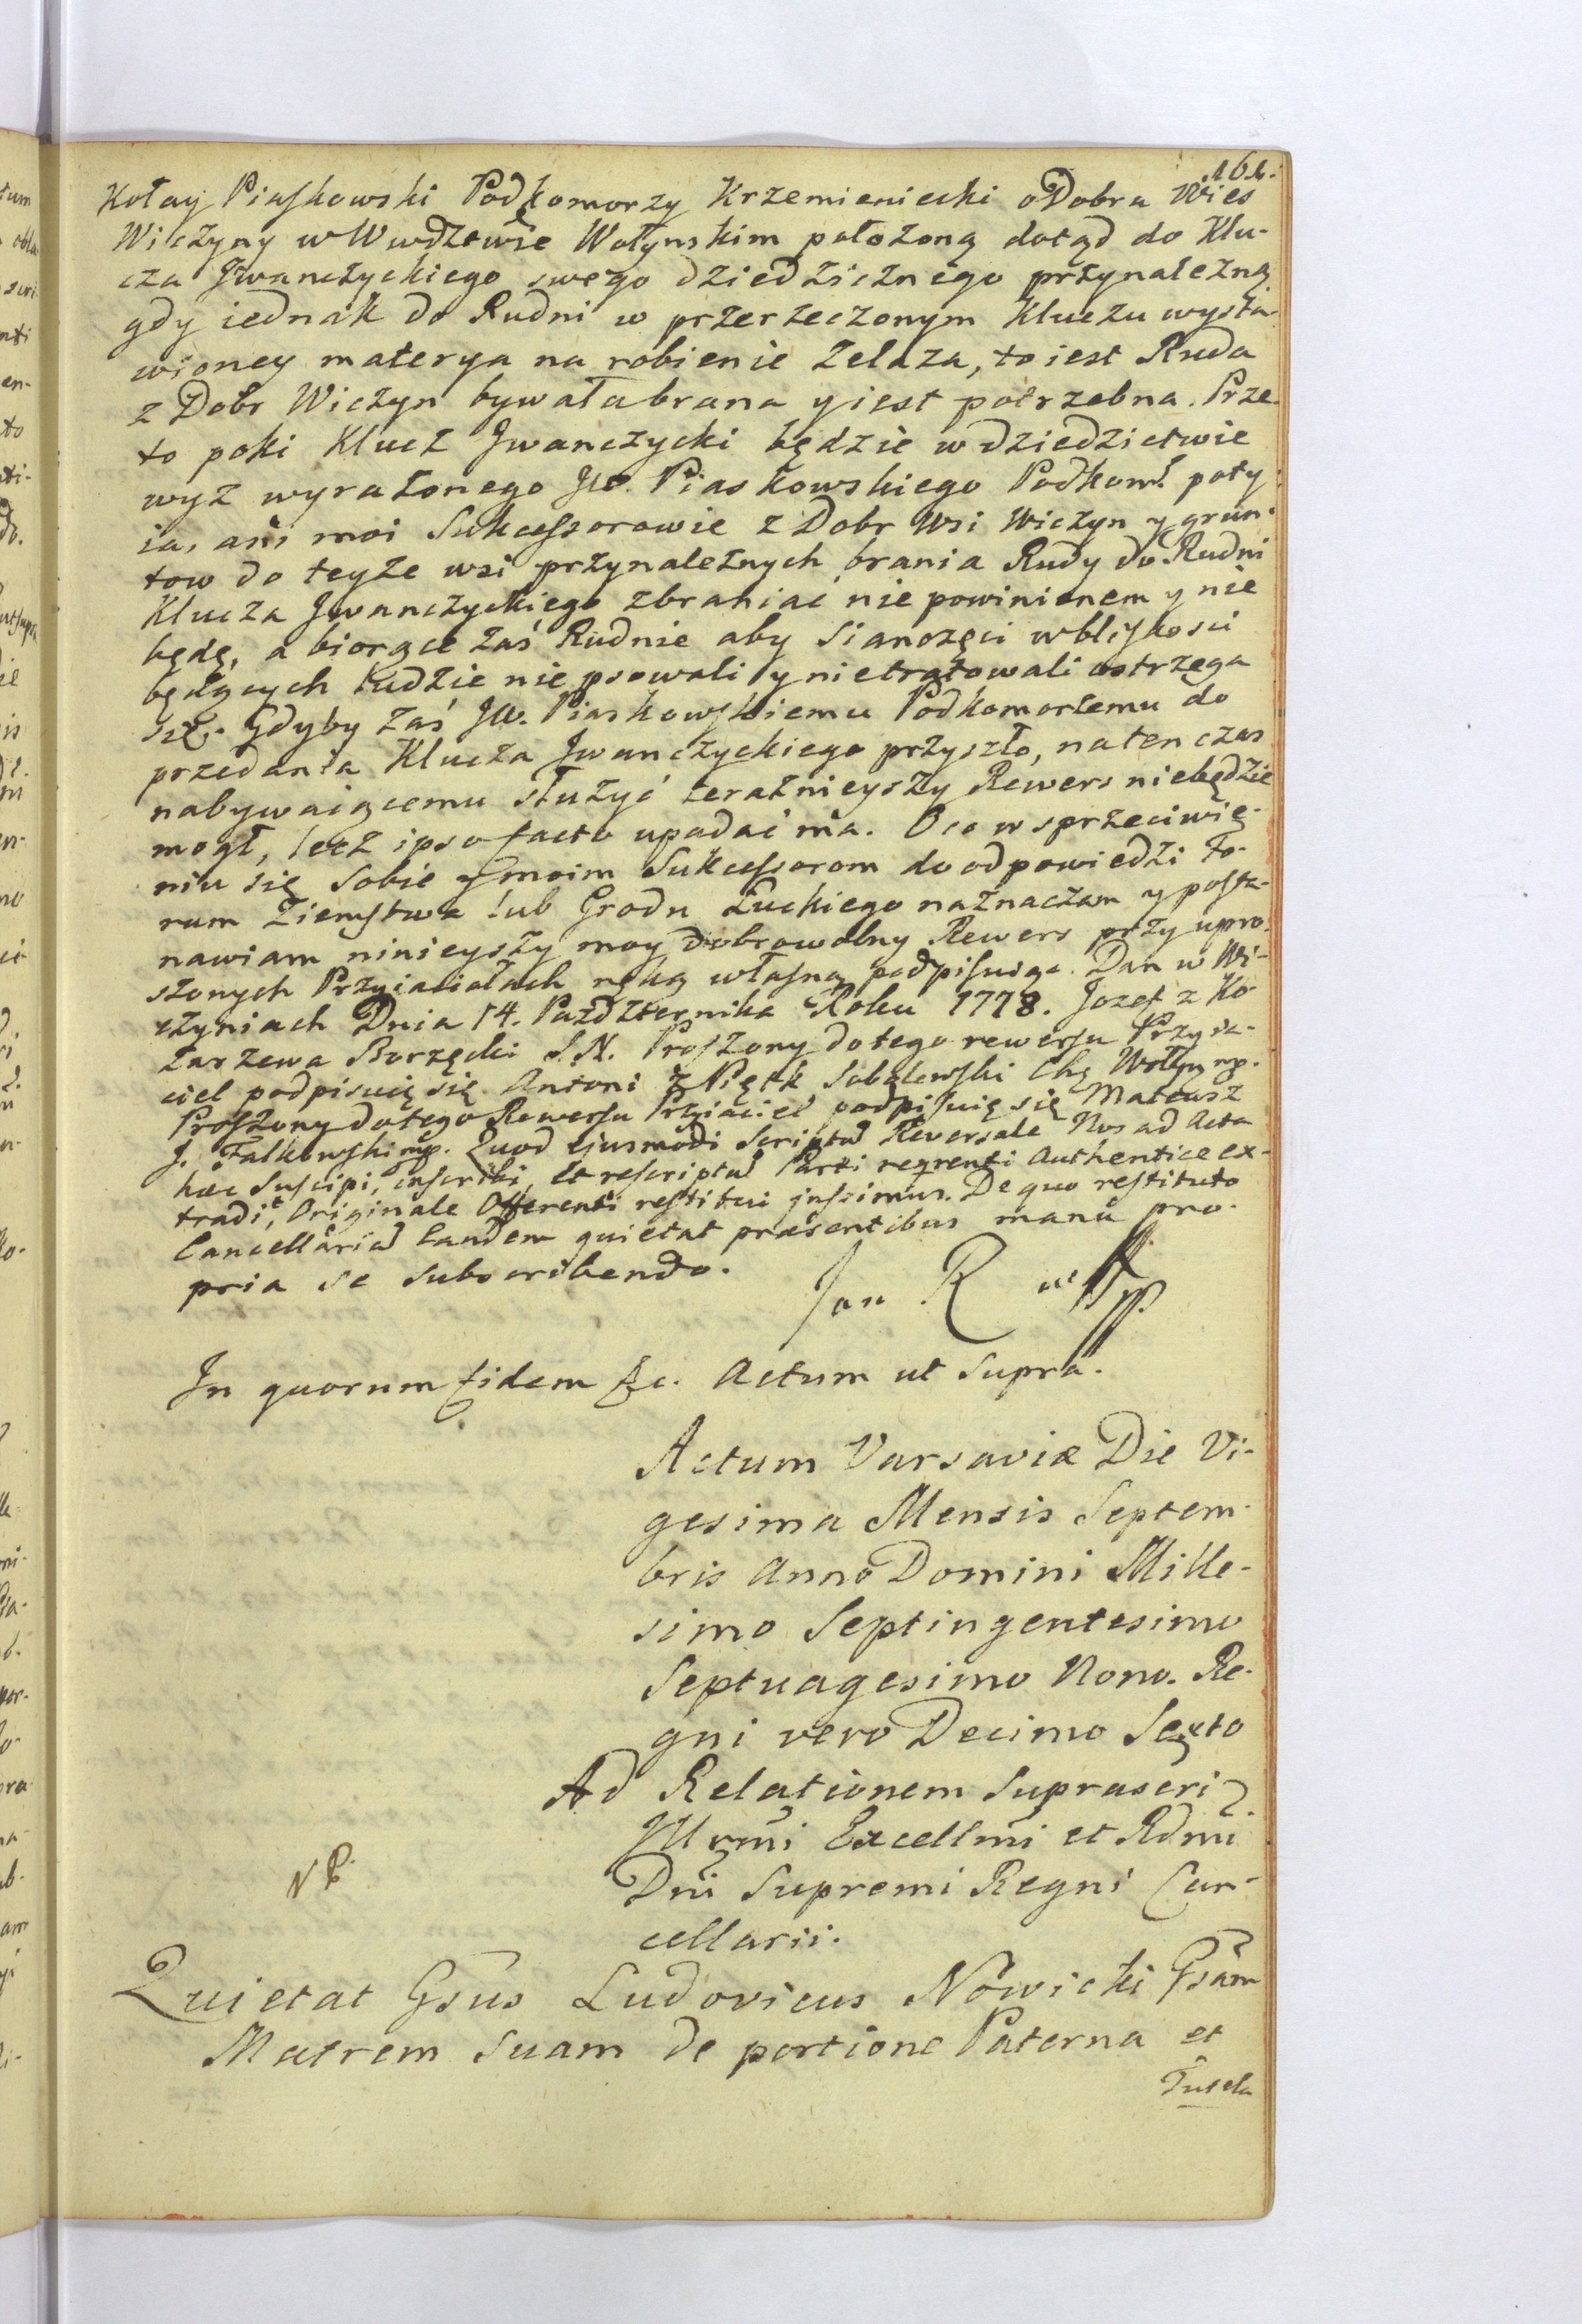 161.
Kołay Piaskowski Podkomorzy Krzemieniecki o Dobra Wies
Wiczyny w Wwdztwie Wołynskim położoną dotąd do Klu-
cza Jwanczyckiego swego dziedzicznego przynależną
gdy iednak do Rudni w przerzeczonym Kluczu wysta-
wioney materya na robienie Zelaza, to iest Ruda
z Dobr Wiczyn bywała brana y iest potrzebna. Prze-
to poki Klucz Jwanczycki będzie w dziedzictwie
wyz wyrażonego JW. Piaskowskiego Podkom. poty
ia, ani moi Sukcessorowie z Dobr Wsi Wiczyn y grun-
tow do teyże wsi przynależnych brania Rudy do Rudni
Klucza Jwanczyckiego zbraniać nie powinienem y nie
będę, a biorące zaś Rudnie aby Sianozęci w bliskosci
będących ludzie nie psowali y nietratowali ostrzega
się. Gdyby zaś JW. Piaskowskiemu Podkomorzemu do
przedania Klucza Jwanczyckiego przyszło, na ten czas
nabywaiącemu służyć teraznieyszy Rewers niebędzie
mogł, lecz ipso facto upadać ma. O co w sprzeciwie-
niu się Sobie y moim Sukcessorom do odpowiedzi fo-
rum Ziemstwa lub Grodu Łuckiego naznaczam y posta-
nawiam ninieyszy moy dobrowolny Rewers przy upro-
szonych Przyiaciołach ręką własną podpisuiąc. Dan w Wi-
czyniach Dnia 14. Pazdziernika Roku 1778. Jozef z Ko-
zarzewa Borzęcki S.N. Proszony do tego rewersu Przyia-
ciel podpisuię się Antoni z Sobolewski Chą Wołyn mp.
Proszony do tego Rewersu Przyiaciel podpisuię się Mateusz
J. Falkowski mp. Quod ejusmodi Scriptu Reversale Nos ad Acta
haec Suscipi, inscribi, et rescriptu Parti reqrenti Authentice ex-
tradi, Originale Offerenti restitui jussimus. De quo restituto
Cancellaria Eandem quietat praesentibus manu pro-
pria se subscribendo.
Jan R
In quorum fidem &c. Actum ut Supra.
Actum Varsaviæ Die Vi-
gesima Mensis Septem-
bris Anno Domini Mille-
simo Septingentesimo
Septuagesimo Nono. Re-
gni vero Decimo Sexto
Ad Relationem Suprascri
Jllrmi Excellmi et Rdmi
Dni Supremi Regni Can-
cellarii.
NB.
Quietat Gsus Ludovicus Nowicki Gsam
Matrem Suam de portione Paterna et
Tutela